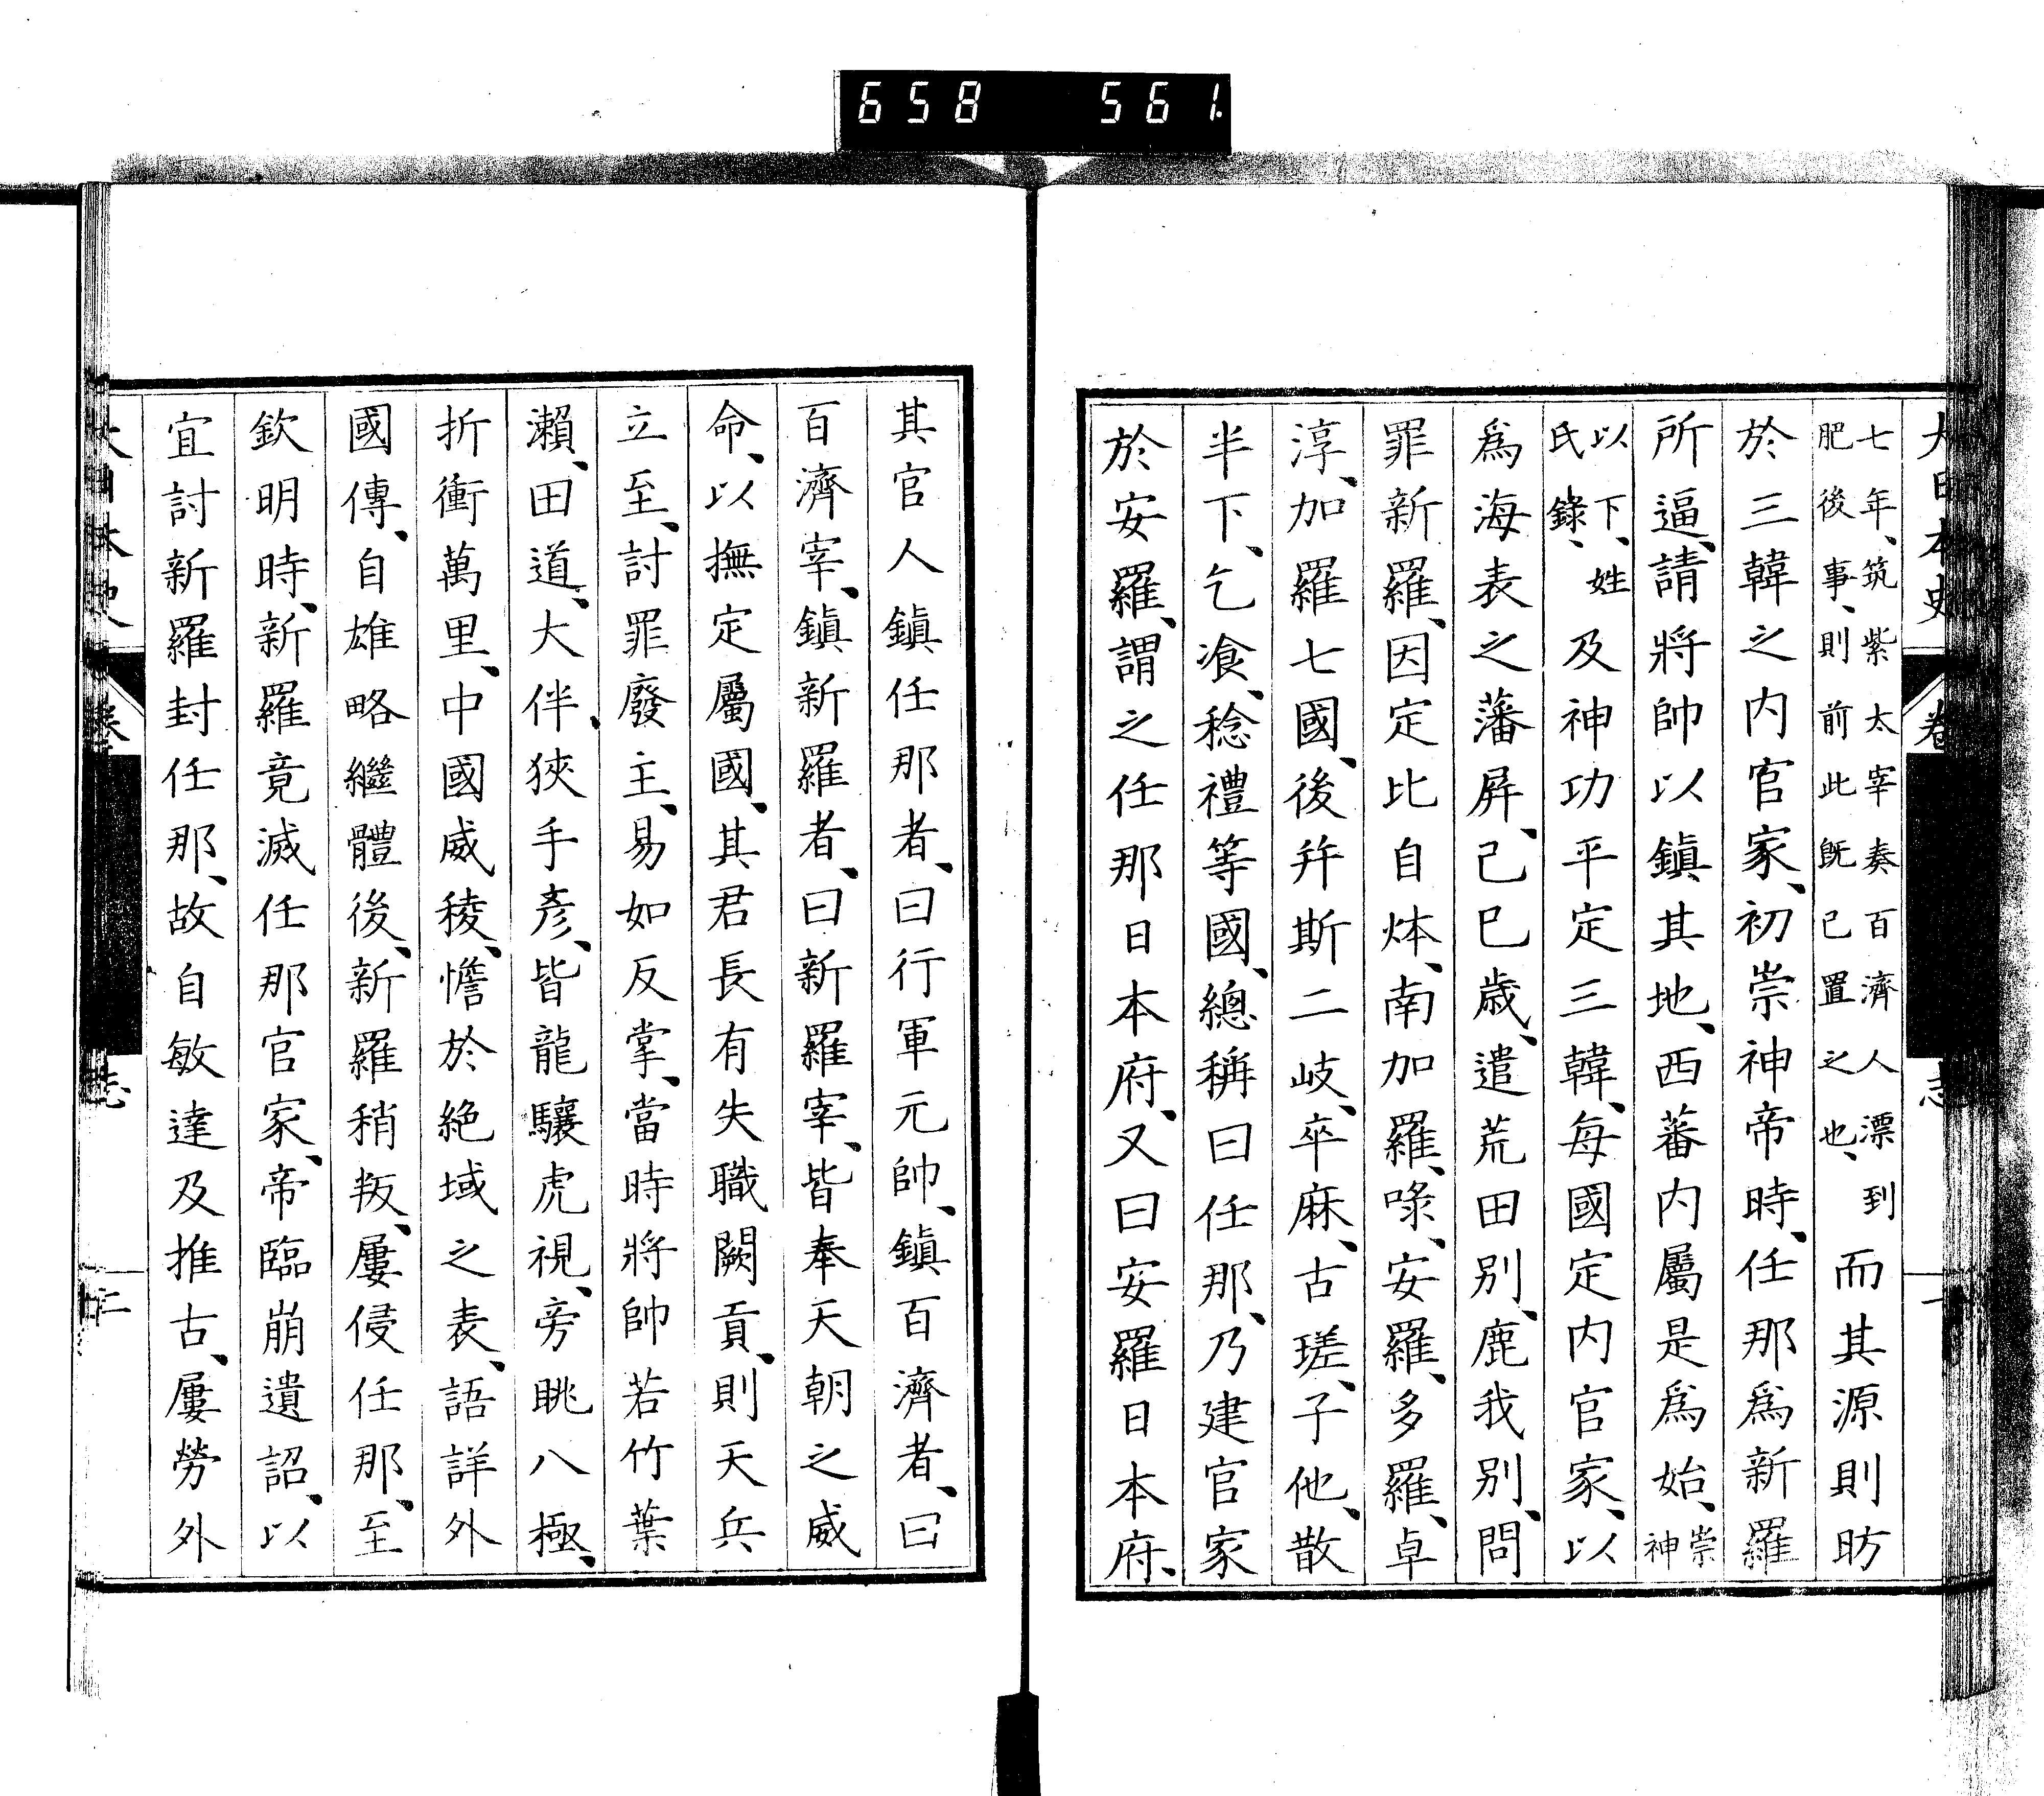 658 561
大日本史 卷 志
七年、筑紫太宰奏百濟人漂到
肥後事、則前此既已置之也、
而其源則昉
於三韓之内官家、初崇神帝時、任那爲新羅
所逼、請將帥以鎮其地、西蕃内屬是爲始、崇神
以下、姓氏錄、
及神功平定三韓、每國定内官家、以
爲海表之藩屏、己巳歳、遣荒田別、鹿我別、問
罪新羅、因定比自㶱、南加羅、㖨、安羅、多羅、卓
淳、加羅七國、後幷斯二岐、卒麻、古瑳、子他、散
半下、乞飡、稔禮等國、總稱曰任那、乃建官家
於安羅、謂之任那日本府、又曰安羅日本府、
其官人鎮任那者、曰行軍元帥、鎮百濟者、曰
百濟宰、鎮新羅者、曰新羅宰、皆奉天朝之威
命、以撫定屬國、其君長有失職闕貢、則天兵
立至、討罪廢主、易如反掌、當時將帥若竹葉
瀨、田道、大伴、狹手彥、皆龍驤虎視、旁眺八極、
折衝萬里、中國威稜、憺於絶域之表、語詳外
國傳、自雄略繼體後、新羅稍叛、屢侵任那、至
欽明時、新羅竟滅任那官家、帝臨崩遺詔、以
宜討新羅封任那、故自敏達及推古、屢勞外
大日本史 卷 志